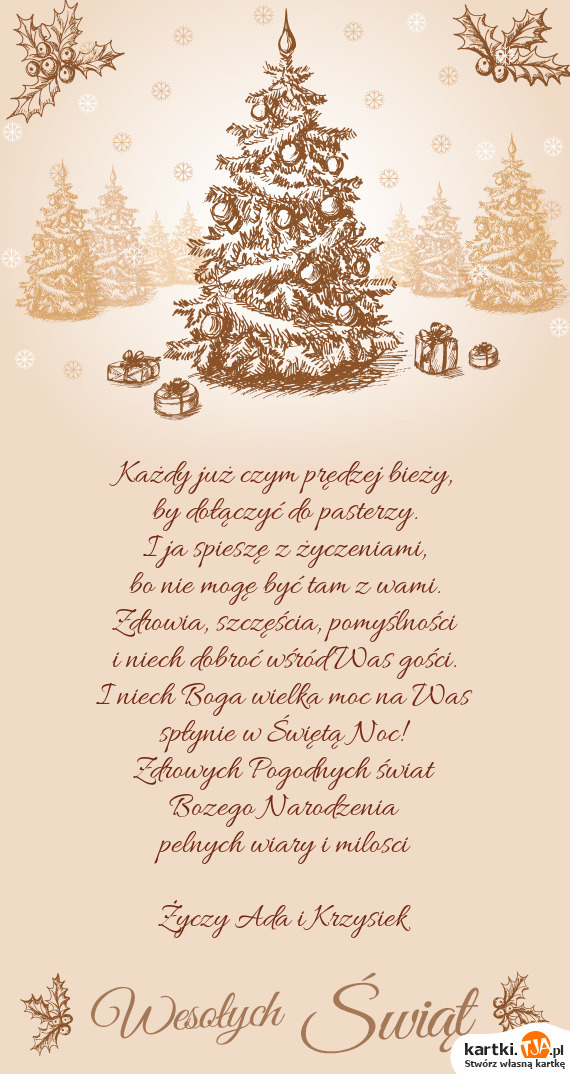 Każdy już czym prędzej bieży,
by dołączyć do pasterzy.
I ja spieszę z życzeniami,
bo nie mogę być tam z wami.
Zdrowia, szczęścia, pomyślności
i niech dobroć wśród Was gości.
I niech Boga wielka moc na Was
spłynie w Świętą Noc!
Zdrowych Pogodnych świat
Bozego Narodzenia
pelnych wiary i milosci
Życzy Ada i Krzysiek
Wesołych Świąt
kartki.TJA.pl
Stwórz własną kartkę